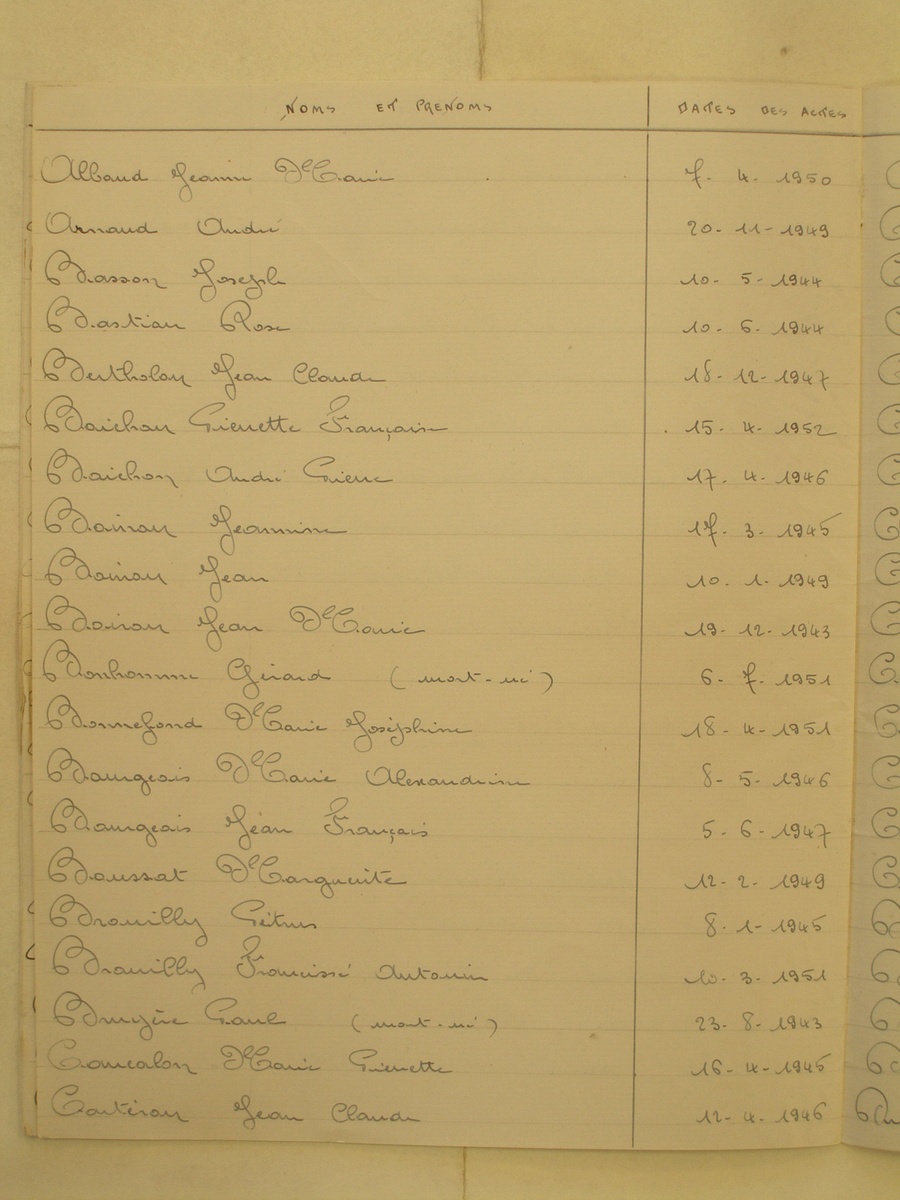 NOMS ET PRENOMS DATES DES ACTES
Albaud Jeanne Marie 7. 4. 1950
Arnaud André 20-11-1949
Basson Joseph 10- 5- 1944
Bastian Rose 10- 6- 1944
Bertholon Jean Claude 18-12-1947
Boichon Pierrette Françoise 15- 4- 1952
Boichon André Pierre 17. 4. 1946
Boiron Jeannine 17. 3. 1945
Boiron Jean 10. 1. 1949
Boiron Jean Marie 19. 12. 1943
Bonhomme Gérard (mort-né) 6- 7- 1951
Bonnefond Marie Joséphine 18- 4-1951
Bourgeois Marie Alexandrine 8- 5- 1946
Bourgeois Jean François 5. 6- 1947
Boussat Marguerite 12- 2- 1949
Brouilly Pétrus 8. 1- 1945
Brouilly Antonin 10. 3. 1951
Bruyère Paul (mort-né) 23- 8- 1943
Marie Pierrette 16- 4-1945
Jean Claude 12-4. 1946